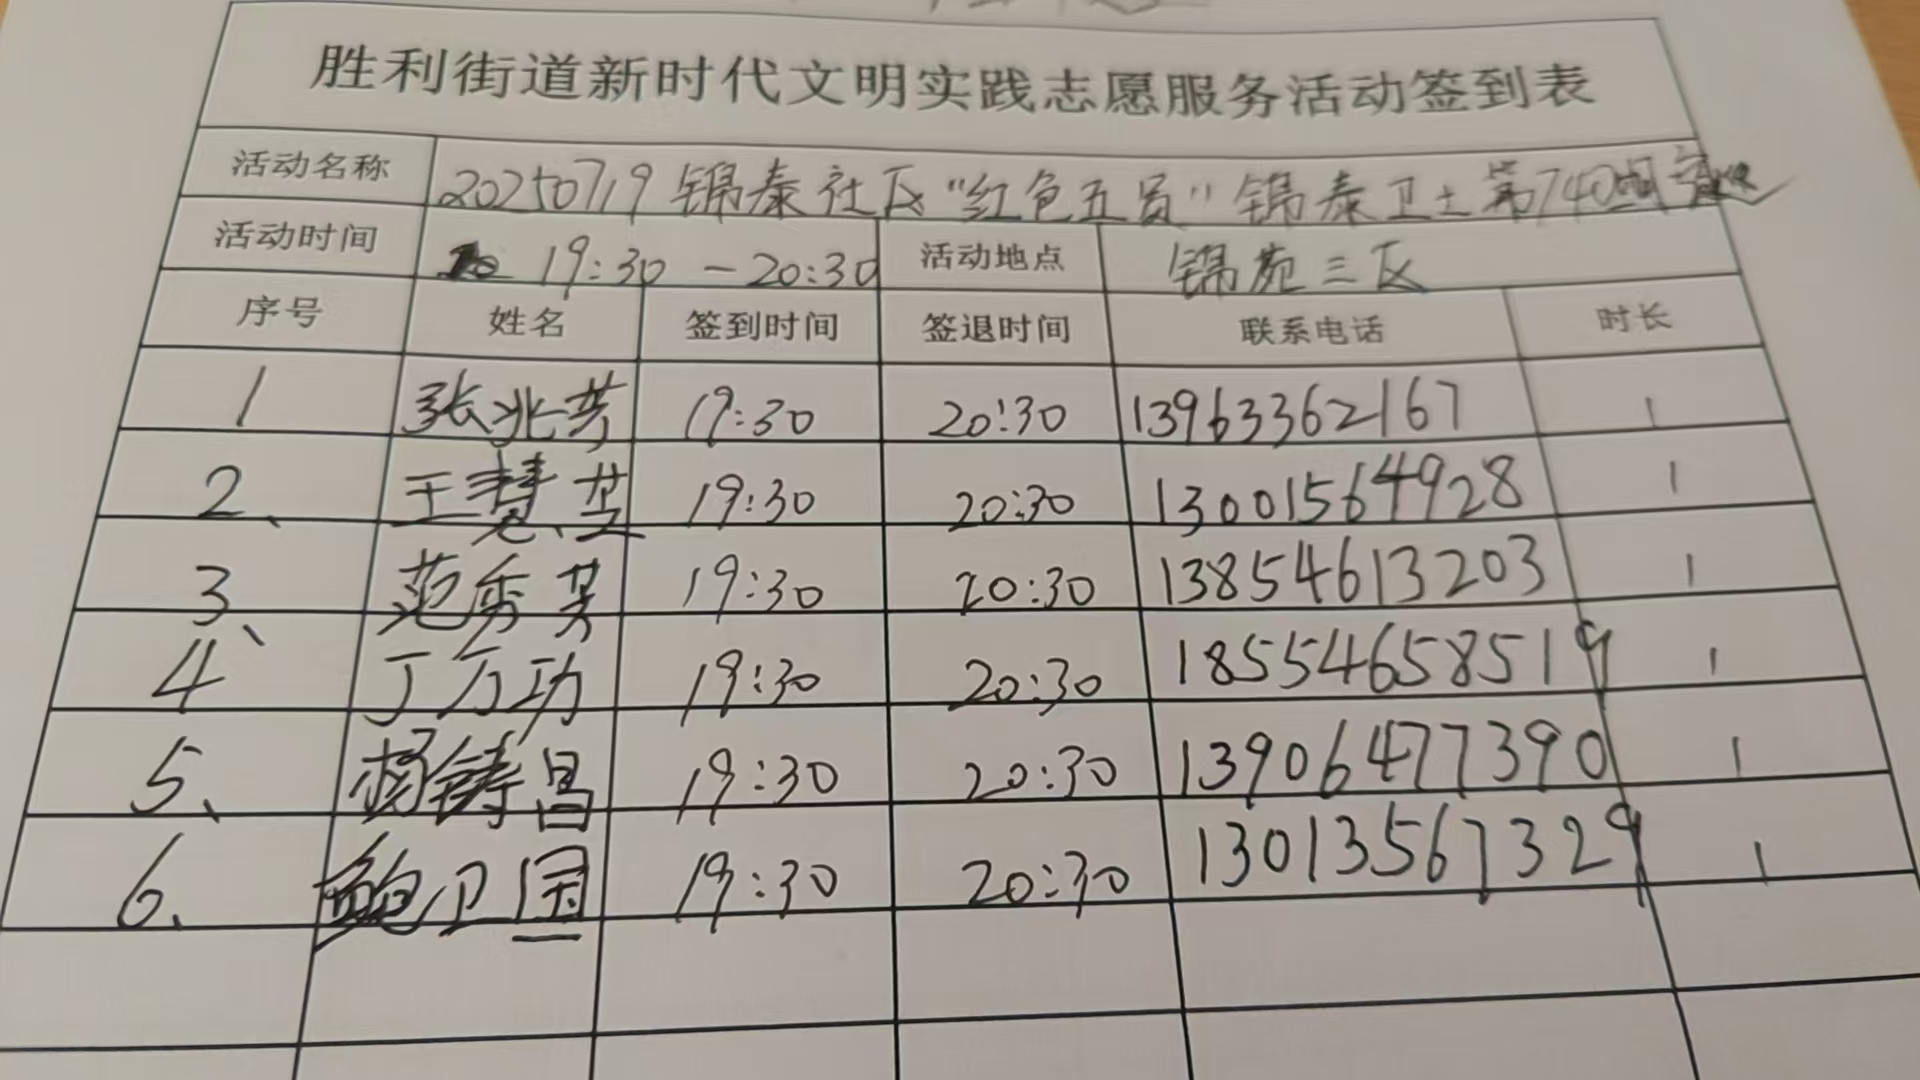 胜利街道新时代文明实践志愿服务活动签到表
活动名称 20250719 锦泰社区“红色五员”锦泰卫士第740期
活动时间 19:30-20:30 活动地点 锦苑三区
序号 姓名 签到时间 签退时间 联系电话 时长
1 张兆芬 19:30 20:30 13963362167 1
2、 王慧 19:30 20:30 13001564928 1
3、 范秀英 19:30 20:30 13854613203 1
4 丁万功 19:30 20:30 18554658519 1
5、 杨铸昌 19:30 20:30 13906477390 1
6、 鲍卫国 19:30 20:30 13013567329 1